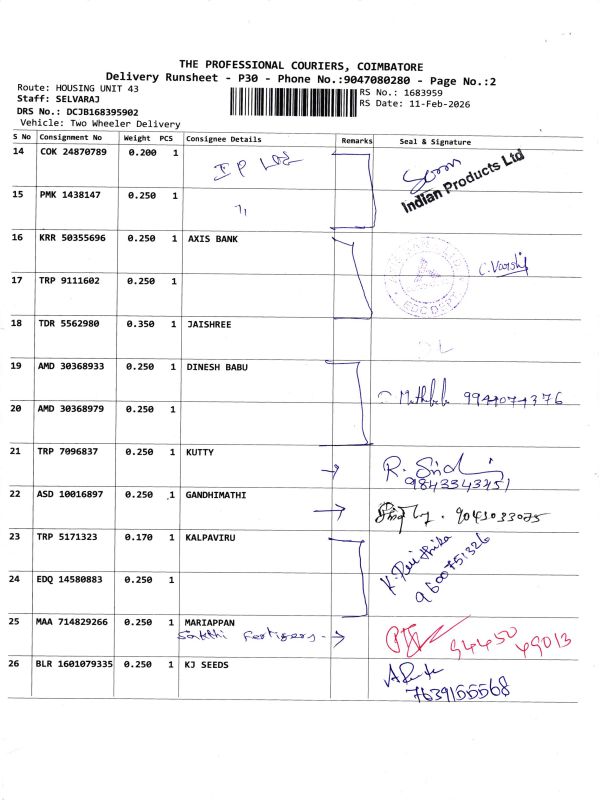 THE PROFESSIONAL COURIERS, COIMBATORE
Delivery Runsheet - P30 - Phone No.:9047080280 - Page No.:2
Route: HOUSING UNIT 43
Staff: SELVARAJ
DRS No.: DCJB168395902
Vehicle: Two Wheeler Delivery
RS No.: 1683959
RS Date: 11-Feb-2026
S No Consignment No Weight PCS Consignee Details Remarks Seal & Signature
14 COK 24870789 0.200 1 Indian Products Ltd
15 PMK 1438147 0.250 1 "
16 KRR 50355696 0.250 1 AXIS BANK
17 TRP 9111602 0.250 1
18 TDR 5562980 0.350 1 JAISHREE
19 AMD 30368933 0.250 1 DINESH BABU
20 AMD 30368979 0.250 1
21 TRP 7096837 0.250 1 KUTTY → 9843343451
22 ASD 10016897 0.250 1 GANDHIMATHI → 9043033075
23 TRP 5171323 0.170 1 KALPAVIRU 9600751326
24 EDQ 14580883 0.250 1
25 MAA 714829266 0.250 1 MARIAPPAN
Sakthi Fertizers - → 94450 49013
26 BLR 1601079335 0.250 1 KJ SEEDS
7639155568